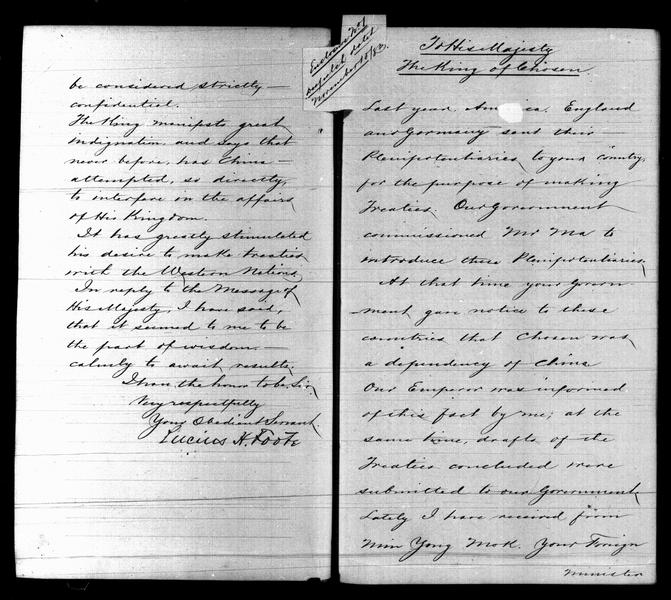 be considered strictly —
confidential.
The King manifests great
indignation, and says that
never before, has China —
attempted, so directly,
to interfere in the affairs
of His Kingdom.
It has greatly stimulated
his desire to make treaties
with the Western Nations.
In reply to the Message of
His Majesty, I have said,
that it seemed to me to be
the part of wisdom —
calmly to await results.
I have the honor to be, Sir,
Very respectfully
Your Obedient Servant.
Lucius H. Foote
Enclosure No 1
despatch dated
November 15/82.
To His Majesty
The King of Chosen.
Last year, America, England
and Germany sent their —
Plenipotentiaries, to your country,
for the purpose of making
Treaties. Our Government
commissioned Mr Ma to
introduce these Plenipotentiaries.
At that time your Govern-
ment gave notice to these
countries that Chosen was
a dependency of China
Our Emperor was informed
of this fact by me; at the
same time, drafts of the
Treaties concluded were
submitted to our Government,
Lately I have received from
Min Yong Mok. Your Foreign
Minister